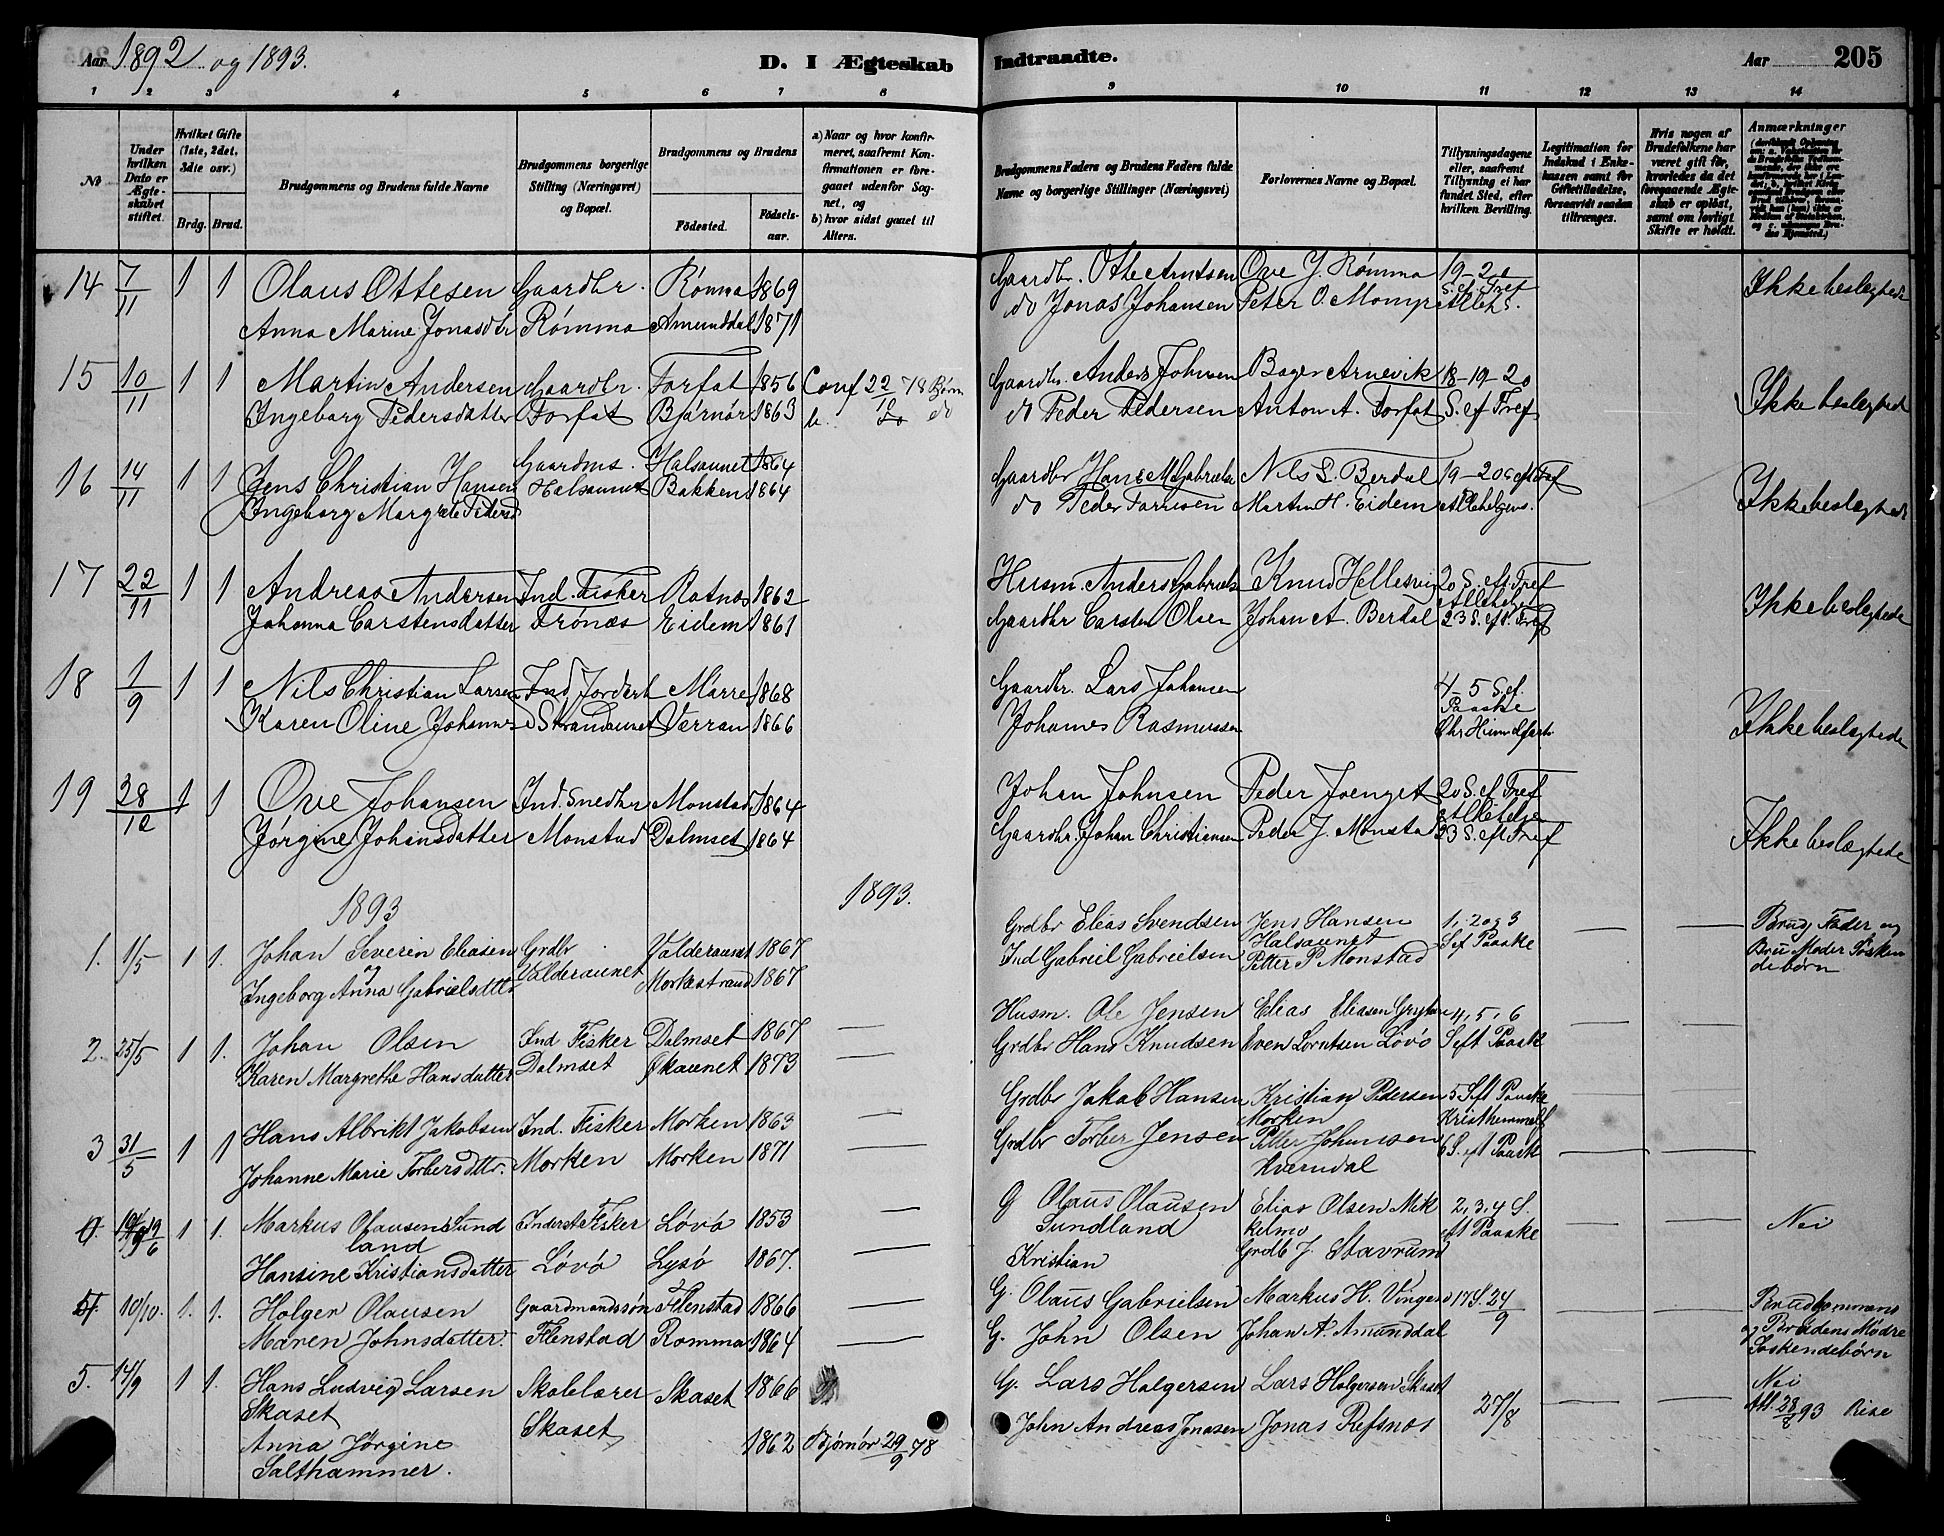 Aar 1892 og 1893.
D. I Ægteskab
Indtraadte.
Aar
205
1 2 3 4 5 6 7 8
9 10 11 12 13 14
No
Under hvilken Dato er Ægteskabet stiftet.
Hvilket Gifte (1ste, 2det, 3die osv.)
Brdg. Brud.
Brudgommens og Brudens fulde Navne
Brudgommens borgerlige Stilling (Næringsvei) og Bopæl.
Brudgommens og Brudens
Fødested.
Fødselsaar.
a) Naar og hvor konfirmeret, saafremt Konfirmationen er foregaaet udenfor Sognet, og
b) hvor sidst gaaet til Alters.
Brudgommens Faders og Brudens Faders fulde Navne og borgerlige Stillinger (Næringsvei)
Forlovernes Navne og Bopæl.
Tillysningsdagene eller, saafremt Tillysning ei har fundet Sted, efter hvilken Bevilling.
Legitimation for Indskud i Enkekassen samt for Giftetilladelse, forsaavidt saadan tiltrænges.
Hvis nogen af Brudefolkene har været gift før, hvorledes da det foregaaende Ægteskab er opløst, samt om lovligt Skifte er holdt.
Anmærkninger
14 7/11 1 1 Olaus Ottesen Gaardbr. Rømma 1869
Anna Marine Jonasdtr Rømma Amunddal 1871
Gaardbr. Otte Arntsen Ove J. Rømma 19-20
S. ef. Tref
do Jonas Johansen Peter O. Momyr Alleh S.
Ikke beslegtede
15 10/11 1 1 Martin Andersen Gaardbr. Torfat 1856 Conf 22/10 78 Bjørn
Ingeborg Pedersdatter Torfat Bjørnør 1863 b. do do
Gaardbr. Anders Johnsen Bager Arnevik 18-19-20
do Peder Pedersen Anton A. Torfat S. ef Tref
Ikke beslegtede
16 14/11 1 1 Jens Christian Hansen Gaardms. Halsaunet 1864
Ingeborg Margrete Pedersd Halsaunet Bakken 1864
Gaardbr Hans M Gabrielsen Nils L. Berdal 19-20 S ef Tref
do Peder Torrisen Martin H. Eidem Allehelgens.
Ikke beslegtede
17 22/11 1 1 Andreas Andersen Ind. Fisker Ratnøs 1862
Johanna Carstensdatter Frønæs Eidem 1861
Husm. Anders Gabriels Knud Hellesvig 20 S. eft. Tref
Allehelg
Gaardbr Carsten Olsen Johan A. Berdal 23 S. eft. Tref
Ikke beslegtede
18 1/9 1 1 Nils Christian Larsen Ind. Jordarb Marre 1868
Karen Oline Johannesd Strandaunet Verran 1866
Gaardbr. Lars Johansen 4-5 S. ef.
Paaske
Johanes Rasmussen Chr Himmelfarts
Ikke beslegtede
19 28/12 1 1 Ove Johansen Ind. Snedkr Monstad 1864
Jørgine Johansdatter Monstad Dalmset 1864
Johan Johnsen Peder Joenget 20 S. ef Tref
Allehelgen
Gaardbr. Johan Christiansen Peder J. Monstad 23 S. eft Tref
Ikke beslegtede
1893 1893.
1. 1/5 1 1. Johan Severin Eliasen Grdbr Valderaunet 1867
og Valderaunet
Ingeborg Anna Gabrielsdatter Morkestrand 1867
Grdbr Elias Svendsen Jens Hansen 1, 2 og 3
Halsaunet S ef Paaske
Ind Gabriel Gabrielsen Petter P Monstad
Brudg Fader og
Brud Moder Søsken
debørn
2. 25/5 1 1. Johan Olsen Ind Fisker Dalmset 1867
Karen Margrethe Hansdatter Dalmset Økaunet 1873
Husm. Ole Jensen Elias Eliasen 4, 5, 6
Grdbr Hans Knudsen Even Lorntsen Løvø S eft Paaske
3 31/5 1 1 Hans Albrikt Jakobsen Ind. Fisker Morken 1863
Johanne Marie Torbersdtr. Morken Morken 1871
Grdbr Jakob Hansen Kristian Pedersen 5 S eft Paaske
Morken Kristhimmelf
Grdbr Torber Jensen Petter Johansen 6 S. eft Paaske
Kverndal
19/6 1 1. Markus Olausen Sund Inderst Fisker Løvø 1853
land
Hansine Kristiansdatter Løvø Lysø 1867.
G Olaus Olausen Elias Olsen Mik 2, 3, 4 S.
Sundland kelmo eft Paaske
Kristian Grdb J. Stavrum
Nei
10/10. 1. 1. Holger Olausen Gaardmandssøn Flenstad 1866
Maren Johnsdatter. Flenstad Romma 1864
G. Olaus Gabrielsen Markus H. Vingen 17 S. 24/9
G. John Olsen Johan A. Amunddal
Brudgommens
og Brudens Mødre
Søskendebørn
5. 14/9 1 1. Hans Ludvig Larsen Skolelærer Skaset 1866
Skaset Skaset
Anna Jørgine 1862 Bjørnør 29/9 78
Salthammer.
G. Lars Holgersen Lars Holgersen Skaset 27/8
John Andreas Jonasen Jonas Refsnøs
Nei
Att. 28/8 93